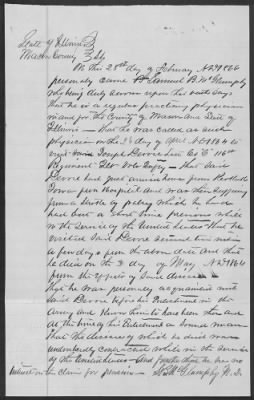 State of Illinois }
Mason County } SS
On the 28th day of February AD 1866
personly came Dr Samuel B. McGlumphy
who being duly sworn upon his oath says
that he is a regular practicing physician
in and for the County of Mason and State of
Illinois - that he was called as such
physician on the 3d day of April AD 1864 to
visit Joseph Devore late Co
Regiment Vol Infty - that said
Devore had just arrived home from
from Hospital and was then suffering
from a stroke of palsy which he had
had but a short time previous while
in the Service of the United States that he
visited Said Devore several times
a few days from the above date and that
he died on the 3 day of May AD 1864
from the effects of Said disease
that he was personly acquainted with
said Devore before his Enlistment in the
Army and knew him to have been
at the time of his Enlistment a Sound man
that the disease of which he died was
undoubtedly contracted while in the Service
of the United States - and further that he has no
interest in this claim for pension - S B McGlumphy M. D.